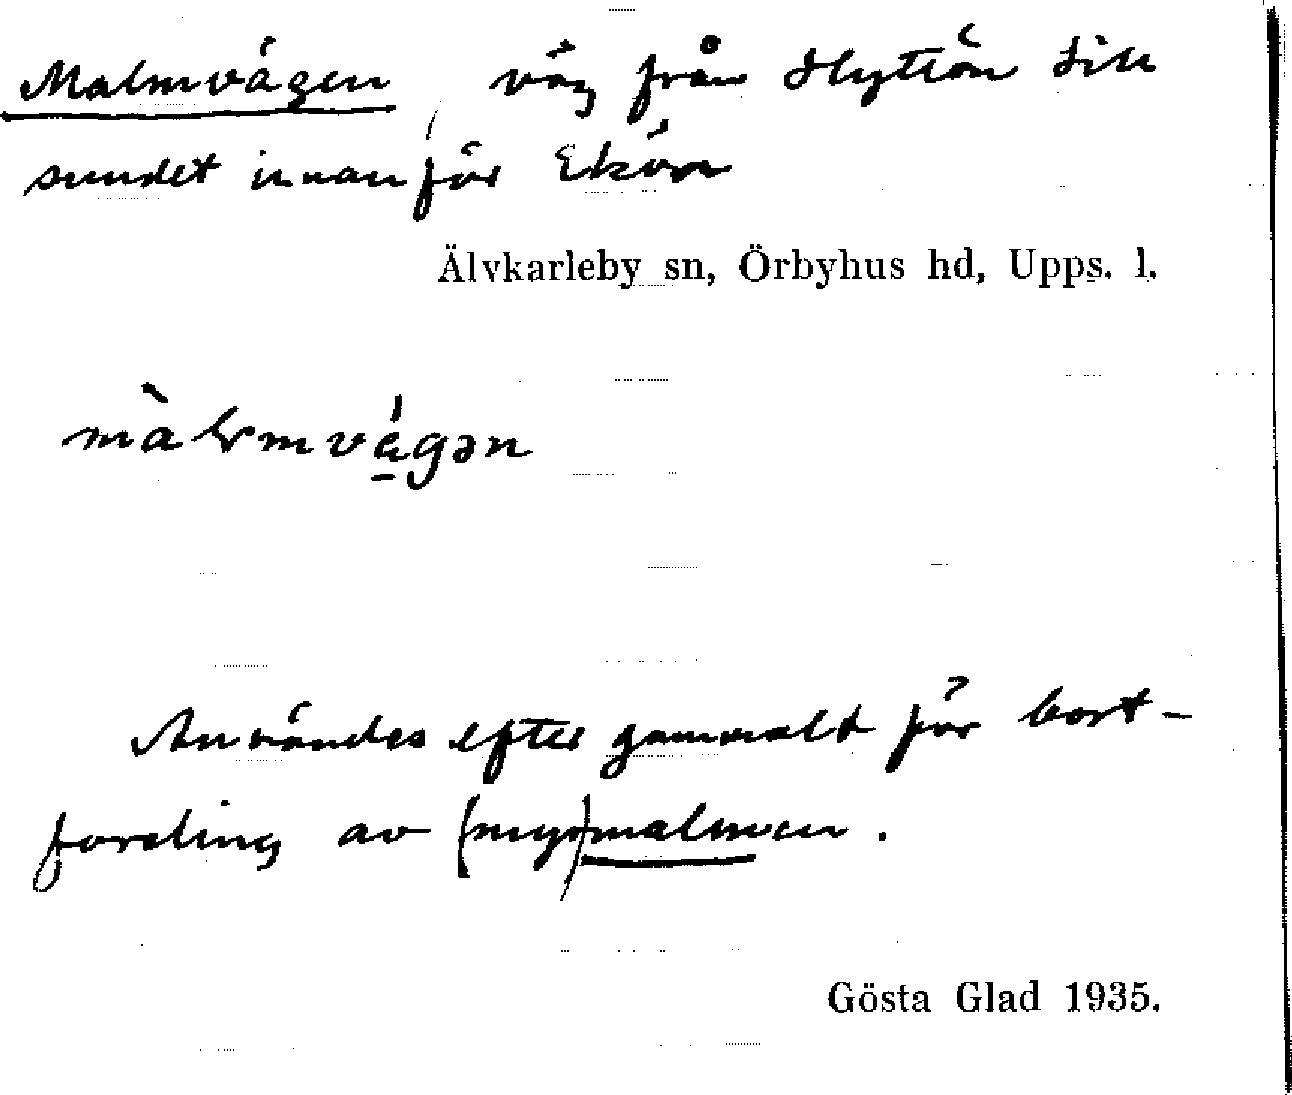 Malmvägen, väg från Hyttön till
sundet innanför Ekön
Älvkarleby sn, Örbyhus hd, Upps. l.
màlrmvá̱gən
Användes efter gammalt för bort-
forsling av (myr)malmen.
Gösta Glad 1935.